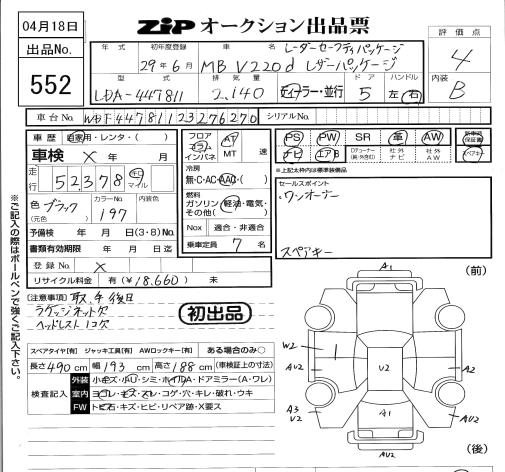 04月18日
ZIP オークション出品票
出品No.
552
年式
初年度登録
車名
29年6月
MB V220d
レーダーセーフティパッケージ
レザーパッケージ
型式
排気量
ドア
ハンドル
LDA-447811
2,140
ディーラー・並行
5
左・右
評価点
4
内装
B
車台No.
WDF44781123276270
シリアルNo.
車歴
自家用・レンタ・( )
車検
× 年 月
走行
52,378
km
マイル
色
(元色)
ブラック
カラーNo.
197
内装色
予備検 年 月 日(3・8)No.
書類有効期限 年 月 日迄
登録No.
×
リサイクル料金 有(¥18,660) 未
フロア
コラム
インパネ
AT
MT
速
冷房
無・C・AC・AAC・( )
燃料
ガソリン・軽油・電気・
その他( )
Nox 適合・非適合
乗車定員 7 名
PS PW SR 革 AW
新車時保証書
ナビ エアB
Dチューナー
(純・外含む)
社外ナビ
社外AW
スペアキー
※上記太枠内は標準装備品
セールスポイント
ワンオーナー
スペアキー
(注意事項) 取、手 後日
ラゲッジネット欠
ヘッドレスト1コ欠
初出品
スペアタイヤ(有) ジャッキ工具(有) AWロックキー(有) ある場合のみ○
長さ490cm 幅193cm 高さ188cm (車検証上の寸法)
検査記入
外装 小キズ・小U・シミ・ホイルA・ドアミラー(A・ワレ)
室内 ヨゴレ・キズ・スレ・コゲ・穴・キレ・破れ・ウキ
FW トビ石・キズ・ヒビ・リペア跡・X要ス
※ご記入の際はボールペンで強くご記入下さい。
(前)
A1
W2
1
AU2
U2
A2
AU2
A3
U2
A1
AU2
AU2
(後)